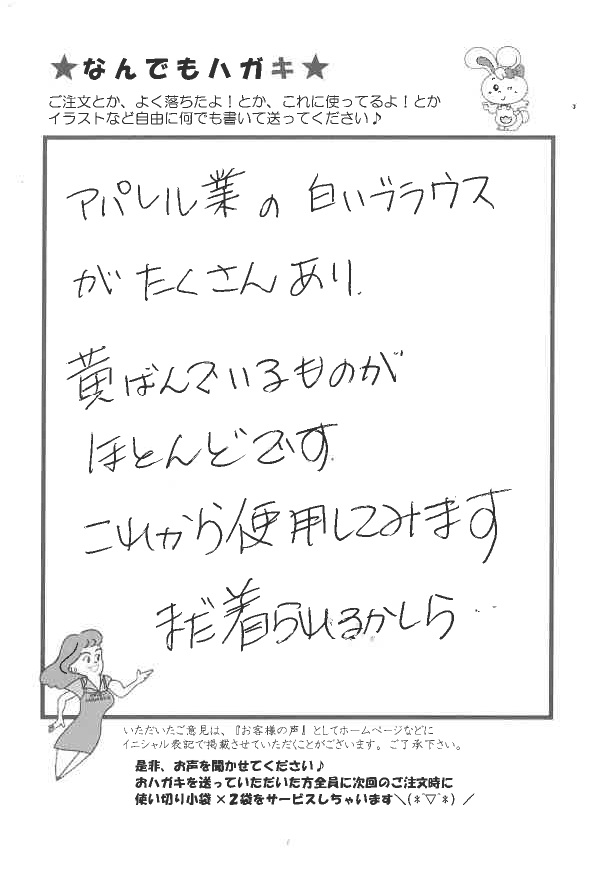 ★なんでもハガキ★
ご注文とか、よく落ちたよ！とか、これに使ってるよ！とか
イラストなど自由に何でも書いて送ってください♪
アパレル業の白いブラウス
がたくさんあり、
黄ばんでいるものが
ほとんどです。
これから使用してみます
まだ着られるかしら…
いただいたご意見は、『お客様の声』としてホームページなどに
イニシャル表記で掲載させていただくことがございます。ご了承下さい。
是非、お声を聞かせてください♪
おハガキを送っていただいた方全員に次回のご注文時に
使い切り小袋×2袋をサービスしちゃいます＼(*´▽`*)／